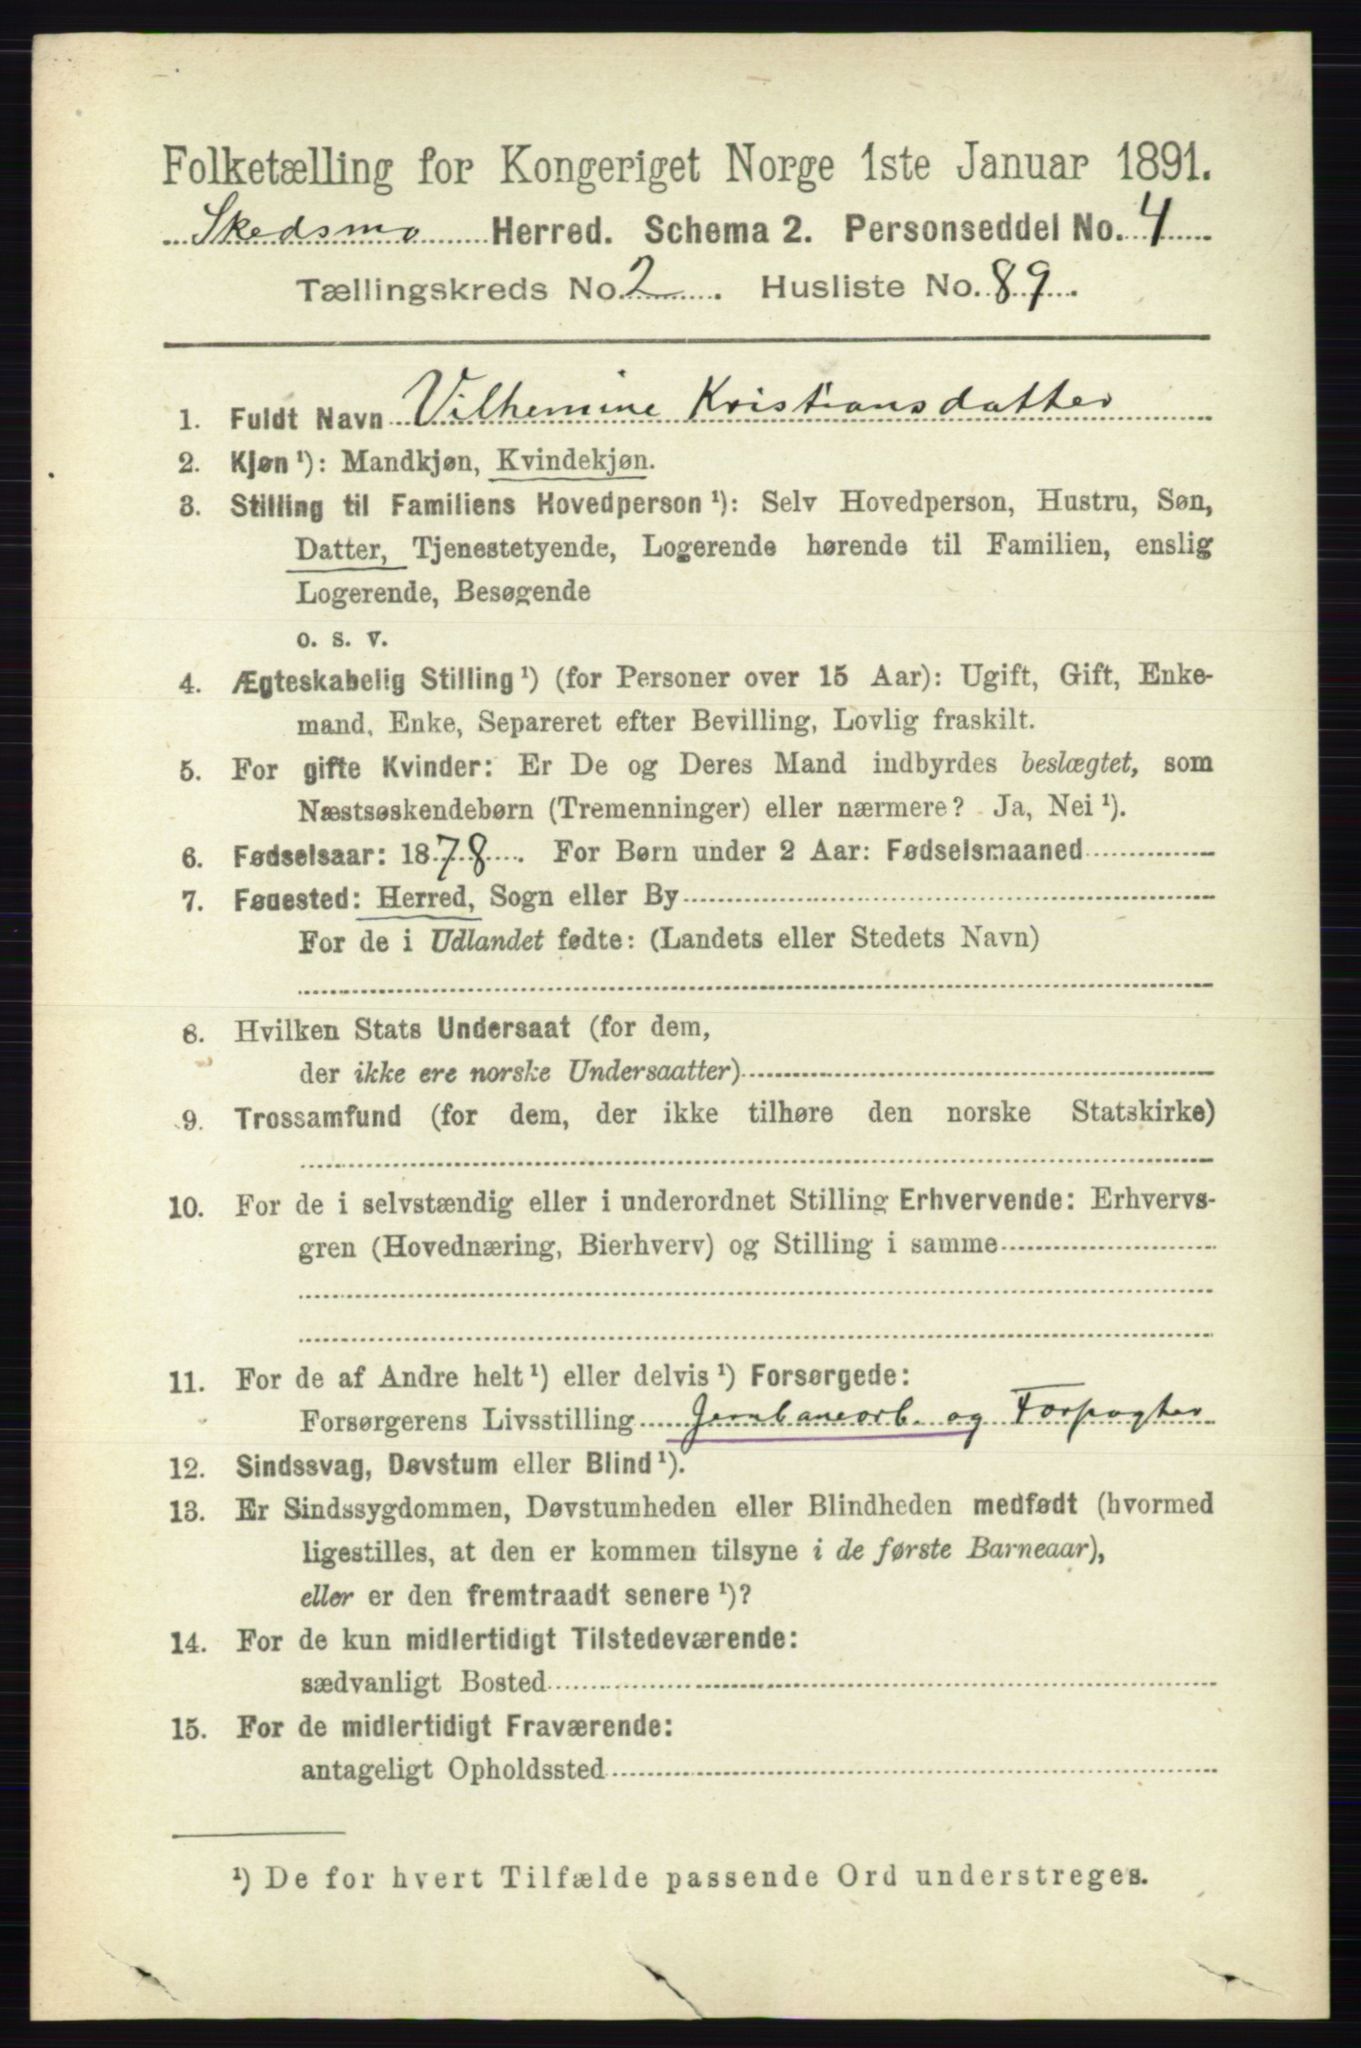 Folketælling for Kongeriget Norge 1ste Januar 1891.
Skedsmo Herred. Schema 2. Personseddel No. 4
Tællingskreds No. 2. Husliste No. 89.
1. Fuldt Navn Vilhemine Kristiansdatter
2. Kjøn ¹): Mandkjøn, Kvindekjøn.
3. Stilling til Familiens Hovedperson ¹): Selv Hovedperson, Hustru, Søn,
Datter, Tjenestetyende, Logerende hørende til Familien, enslig
Logerende, Besøgende
o. s. v.
4. Ægteskabelig Stilling ¹) (for Personer over 15 Aar): Ugift, Gift, Enke-
mand, Enke, Separeret efter Bevilling, Lovlig fraskilt.
5. For gifte Kvinder: Er De og Deres Mand indbyrdes beslægtet, som
Næstsøskendebørn (Tremenninger) eller nærmere? Ja, Nei ¹).
6. Fødselsaar: 1878. For Børn under 2 Aar: Fødselsmaaned
7. Fødested: Herred, Sogn eller By
For de i Udlandet fødte: (Landets eller Stedets Navn)
8. Hvilken Stats Undersaat (for dem,
der ikke ere norske Undersaatter)
9. Trossamfund (for dem, der ikke tilhøre den norske Statskirke)
10. For de i selvstændig eller i underordnet Stilling Erhvervende: Erhvervs-
gren (Hovednæring, Bierhverv) og Stilling i samme
11. For de af Andre helt ¹) eller delvis ¹) Forsørgede:
Forsørgerens Livsstilling Jernbanearb. og Forpagter
12. Sindssvag, Døvstum eller Blind ¹).
13. Er Sindssygdommen, Døvstumheden eller Blindheden medfødt (hvormed
ligestilles, at den er kommen tilsyne i de første Barneaar),
eller er den fremtraadt senere ¹)?
14. For de kun midlertidigt Tilstedeværende:
sædvanligt Bosted
15. For de midlertidigt Fraværende:
antageligt Opholdssted
¹) De for hvert Tilfælde passende Ord understreges.